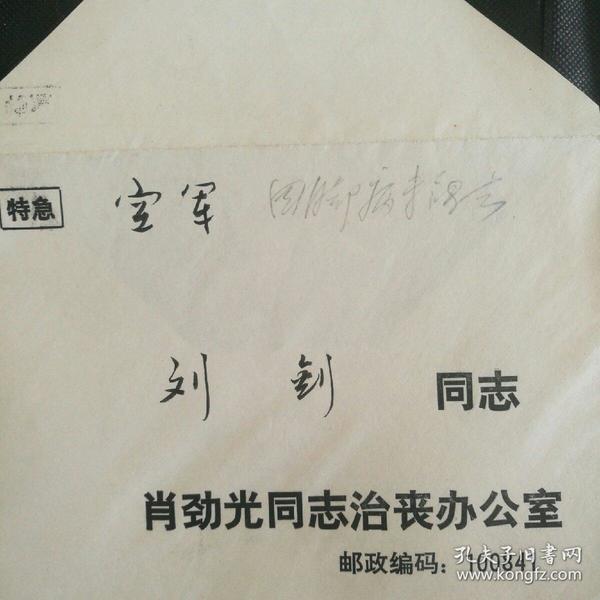 特急
空军 因脚病未能去
刘剑 同志
肖劲光同志治丧办公室
邮政编码：100841
孔夫子旧书网
www.kongfz.com